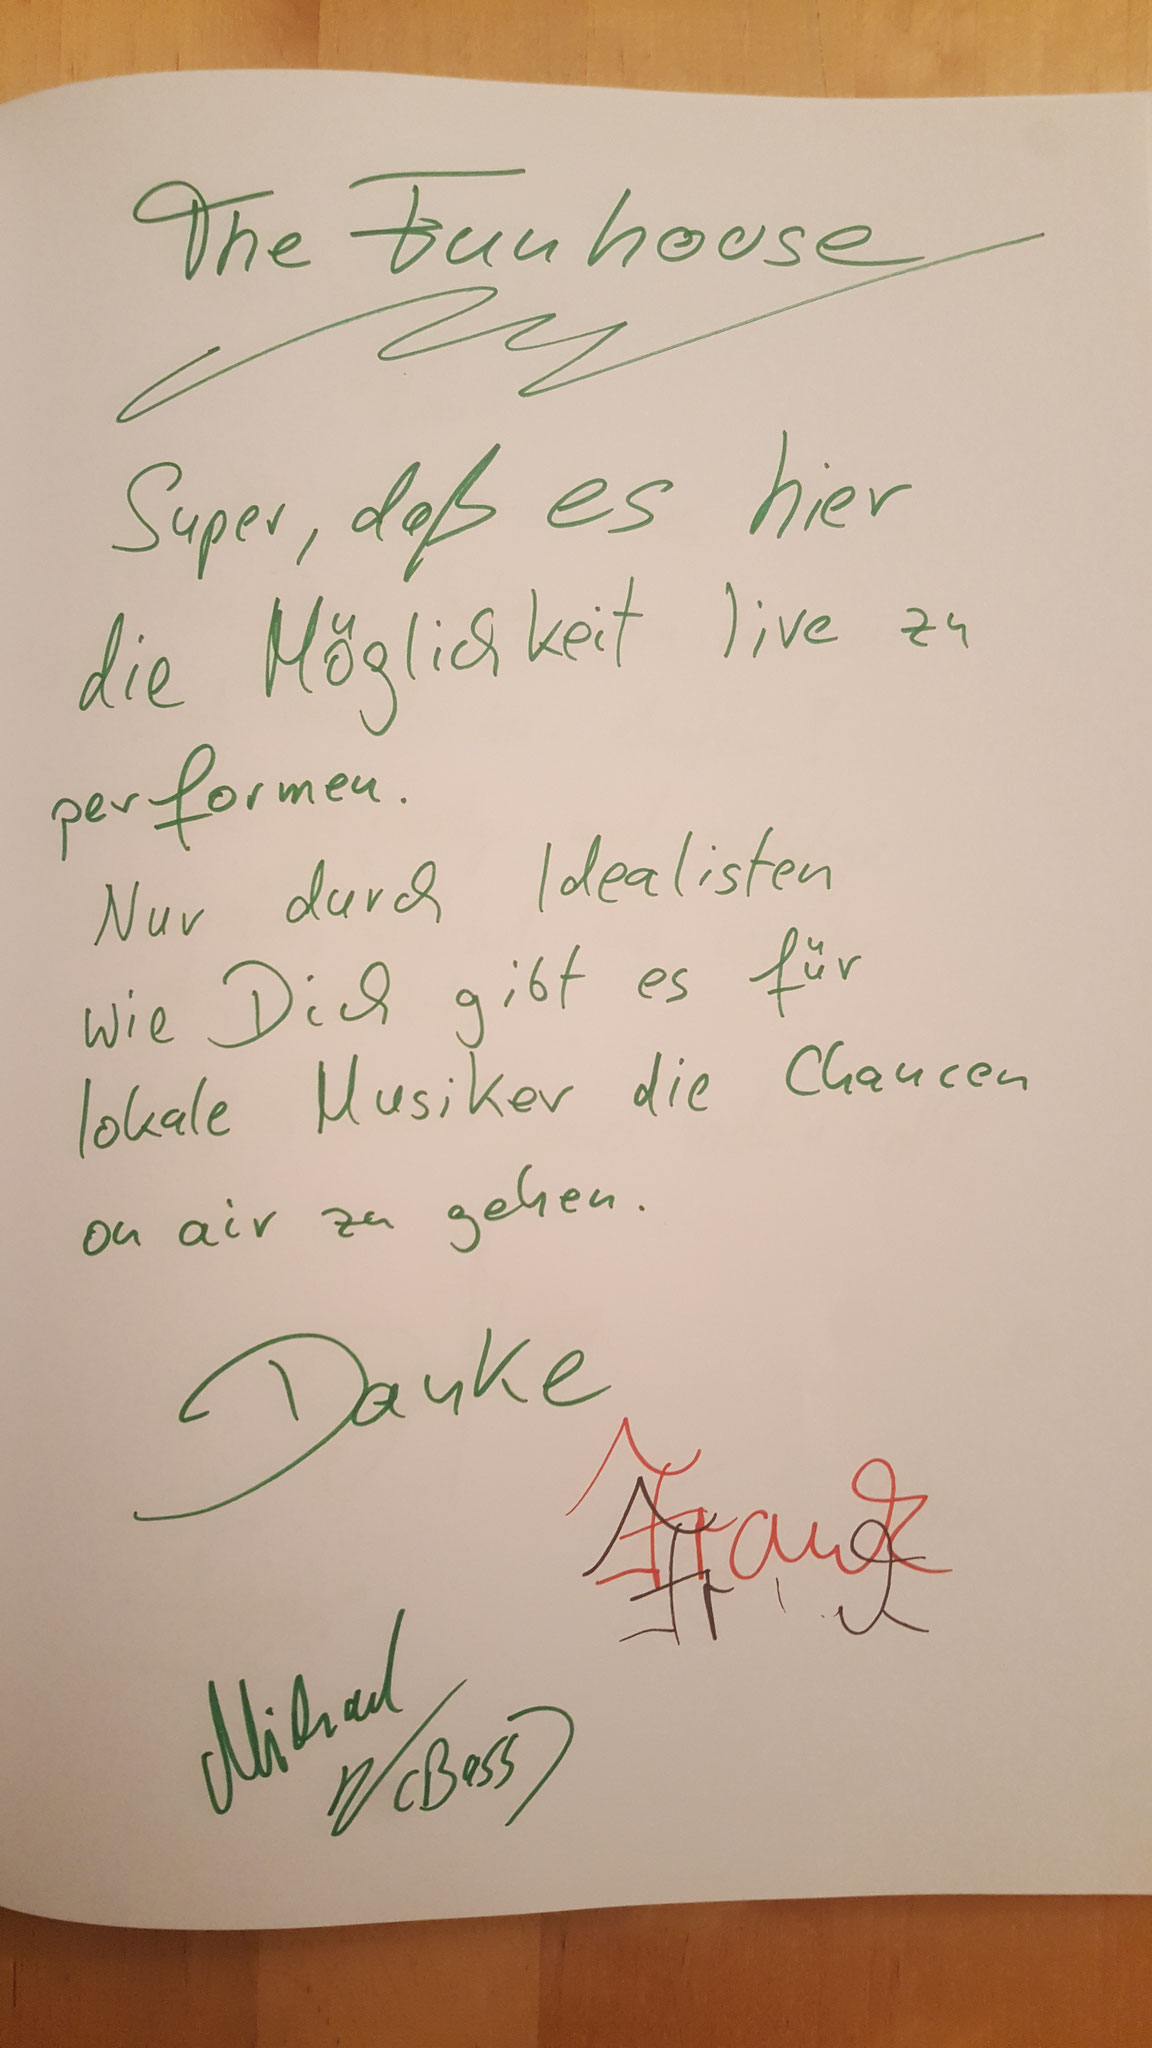 The Funhouse
Super, daß es hier
die Möglichkeit live zu
performen.
Nur durch Idealisten
wie Dich gibt es für
lokale Musiker die Chancen
on air zu gehen.
Danke
Frank
Michael
(Bass)